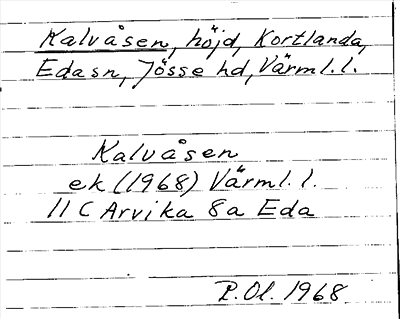 Kalvåsen, höjd, Kortlanda,
Eda sn, Jösse hd, Värml. l.
Kalvåsen
ek (1968) Värml. l.
11 C Arvika 8a Eda
P. Ol. 1968